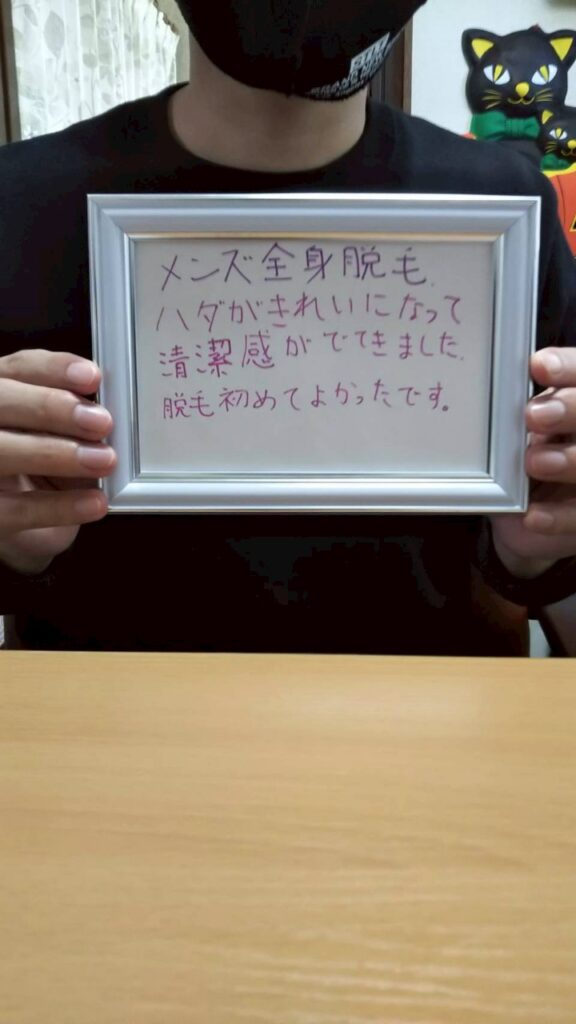 メンズ全身脱毛.
ハダがきれいになって
清潔感がでてきました.
脱毛初めてよかったです。